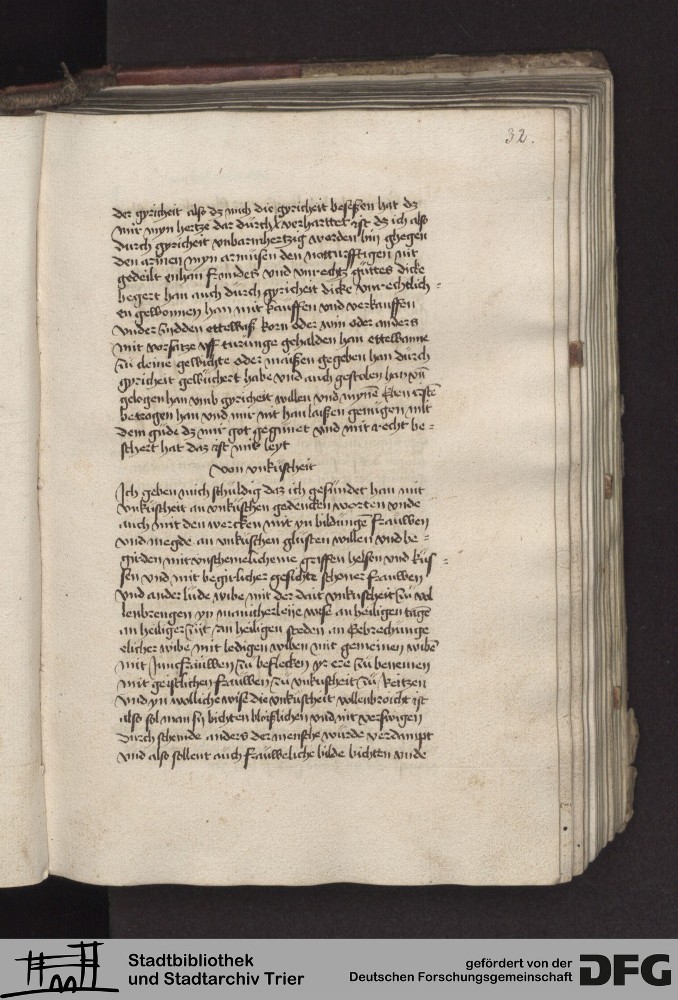 32.
der gyricheit also dz mich die gyricheit beseßen hat dz
mir myn hertze dar durch verhartet ist dz ich also
durch gyricheit vnbarmhertzig worden bin ghegen
den armen myn armüsen den notturfftigen nit
gedeilt enhan fremdes vnd vnrechtz güttes dicke
begert han auch durch gyricheit dicke vnrechtlich =
en gewonnen han mit kauffen vnd verkauffen
vnder ettewaß korn oder win oder anders
mit vorsatze vff turunge gehalden han ettewanne
zü cleine gewichte oder maißen gegeben han durch
gyricheit gewüchert habe vnd auch gestolen han vn̄
gelogen han vmb gyricheit willen vnd mynē
betrogen han vnd mir nit han laißen genügen mit
dem güde dz mir got gegünnet vnd mit recht be =
schert hat daz ist mir leyt
Von vnküscheit
Ich geben mich schuldig daz ich gesündet han mit
vnküscheit an vnküschen gedencken worten vnde
auch mit den wercken mit yn bildungē frauwen
vnd megde an vnküschen glusten willen vnd be =
girden mit vnschemelicheme griffen helsen vnd küs =
sen vnd mit begirlicher gesichte schoner frauwen
vnd ander lude wibe mit der dait vnküscheit zü vol
lenbrengen yn manicherleye wise an heiligen tagē
an heiliger zijt an heiligen steden an Eebrechunge
elicher wibe mit ledigen wiben mit gemeinen wibē
mit Jungfrauwen zü beflecken yr ere zü benemen
mit geistlichen frauwen zü vnküscheit zü reitzen
vnd yn wolliche wise die vnküscheit vollenbroicht ist
also sol man sij bichten bloißlichen vnd nit verswigen
durch schemde anders der mensche würde verdampt
vnd also sollent auch frauweliche bilde bichten vnde
Stadtbibliothek
und Stadtarchiv Trier
gefördert von der
Deutschen Forschungsgemeinschaft
DFG